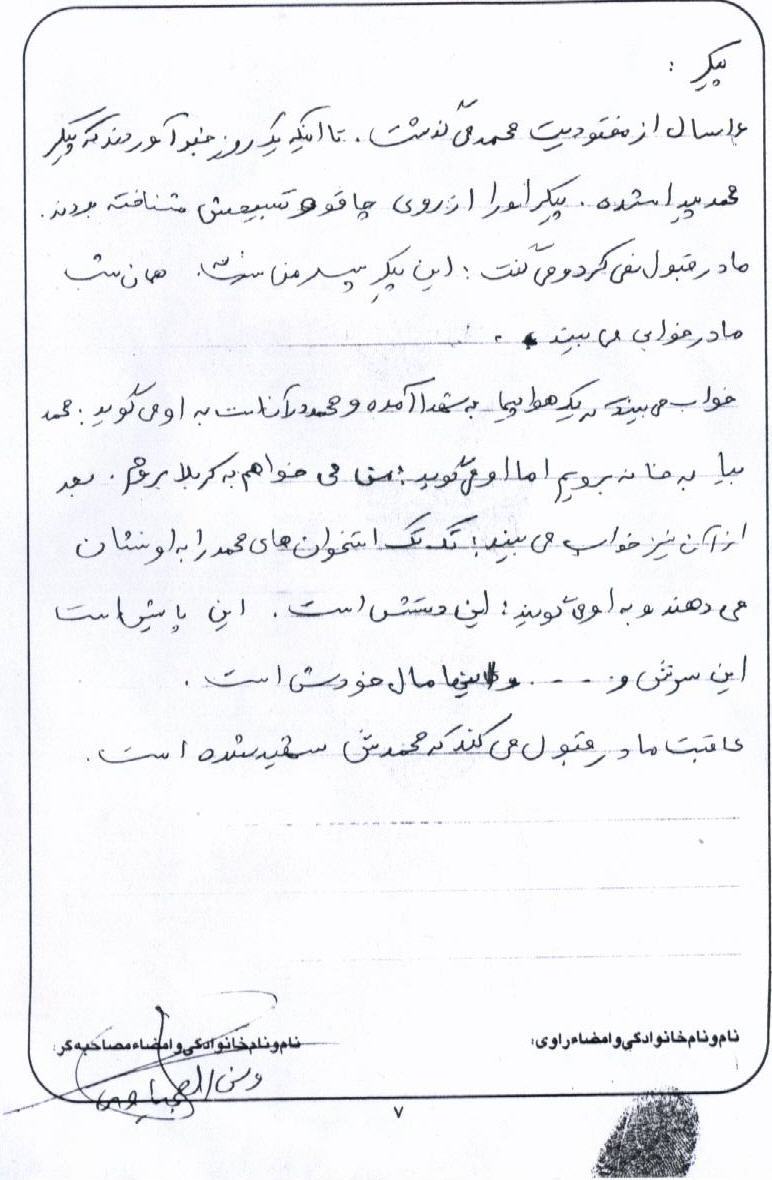 پیکر :
۱۶ سال از مفقودیت محمد می گذشت . تا اینکه یک روز خبر آوردند که پیکر
محمد پیدا شده . پیکر او را از روی چاقو و تسبیحش شناخته بودند .
مادر قبول نمی کرد و می گفت : این پیکر پسر من نیست . همان شب
مادر خوابی می بیند .
خواب می بیند که یک هواپیما شهدا آمده و محمد در آن است به او می گوید : محمد
بیا به خانه برویم اما او می گوید : من می خواهم به کربلا بروم . بعد
از آن نیز خواب می بیند ؛ تک تک استخوان های محمد را به او نشان
می دهند و به او می گویند : این دستش است . این پایش است
این سرش و ---- و اینها مال خودش است .
عاقبت مادر قبول می کند که محمدش شهید شده است .
نام و نام خانوادگی و امضاء راوی:
نام و نام خانوادگی و امضاء مصاحبه گر:
۷